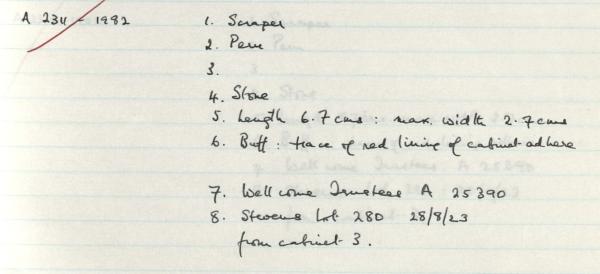 A 2311 - 1982
1. Scraper
2. Peru
3.
4. Stone
5. Length 6.7 cms : max. width 2.7 cms
6. Buff : trace of red lining of cabinet adhere
7. Wellcome Trustees A 25390
8. Stevens Lot 280 28/8/23
from cabinet 3.